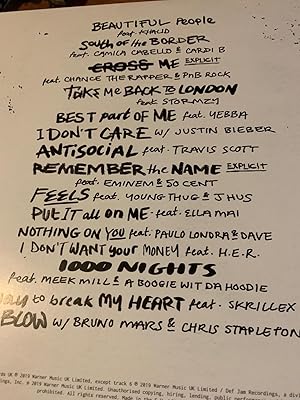 BEAUTIFUL PEOPLE
feat. KHALID
SOUTH OF THE BORDER
feat. CAMILA CABELLO & CARDI B
CROSS ME EXPLICIT
feat. CHANCE THE RAPPER & PnB ROCK
TAKE ME BACK TO LONDON
feat. STORMZY
BEST PART OF ME feat. YEBBA
I DON'T CARE W/ JUSTIN BIEBER
ANTISOCIAL feat. TRAVIS SCOTT
REMEMBER the NAME EXPLICIT
feat. EMINEM & 50 CENT
FEELS feat. YOUNG THUG & J HUS
PUT IT all on ME feat. ELLA MAI
NOTHING ON YOU feat. PAULO LONDRA & DAVE
I DON'T WANT YOUR MONEY feat. H.E.R.
1000 NIGHTS
feat. MEEK MILL & A BOOGIE WIT DA HOODIE
WAY to break MY HEART feat. SKRILLEX
BLOW W/ BRUNO MARS & CHRIS STAPLETON
rds UK ℗ 2019 Warner Music UK Limited, except track 6 ℗ 2019 Warner Music UK Limited / Def Jam Recordings, a div
ings, Inc. © 2019 Warner Music UK Limited. Unauthorised copying, hiring, lending, public performance
prohibited. All rights reserved. Made in the